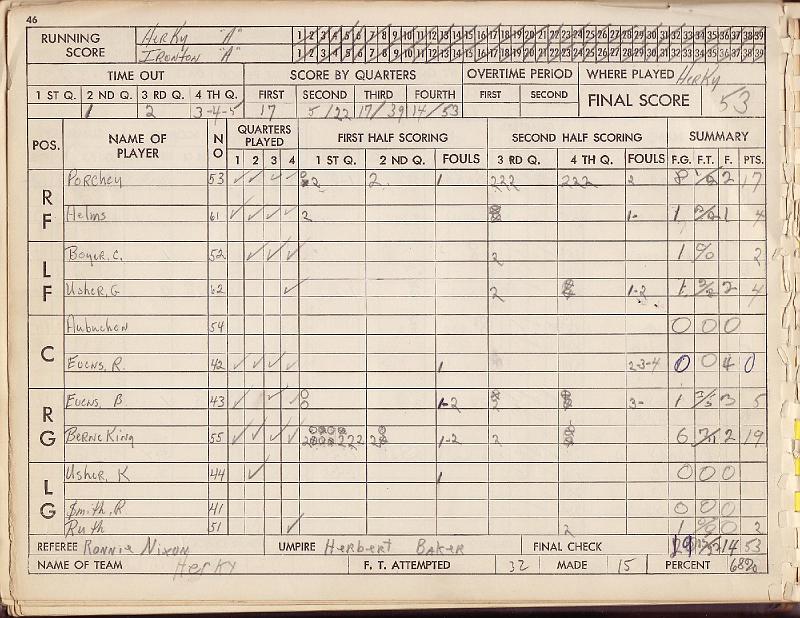 46
RUNNING SCORE Herky "A" 1 2 3 4 5 6 7 8 9 10 11 12 13 14 15 16 17 18 19 20 21 22 23 24 25 26 27 28 29 30 31 32 33 34 35 36 37 38 39
Ironton "A" 1 2 3 4 5 6 7 8 9 10 11 12 13 14 15 16 17 18 19 20 21 22 23 24 25 26 27 28 29 30 31 32 33 34 35 36 37 38 39
TIME OUT SCORE BY QUARTERS OVERTIME PERIOD WHERE PLAYED Herky
1 ST Q. 2 ND Q. 3 RD Q. 4 TH Q. FIRST SECOND THIRD FOURTH FIRST SECOND FINAL SCORE 53
1 2 3-4-5 17 5/22 17/39 14/53
POS. NAME OF PLAYER NO QUARTERS PLAYED FIRST HALF SCORING SECOND HALF SCORING SUMMARY
1 2 3 4 1 ST Q. 2 ND Q. FOULS 3 RD Q. 4 TH Q. FOULS F.G. F.T. F. PTS.
RF Porchey 53 ✓ ✓ ✓ ✓ 2 2 1 222 222 2 8 1/2 2 17
Helms 61 ✓ ✓ ✓ ✓ 2 1- 1 1 4
LF Boyer, C. 52 ✓ ✓ ✓ 2 1 % 2
Usher, G 62 ✓ 2 1-2 1 2 4
C Aubuchon 54 0 0 0
Evens, R. 42 ✓ ✓ ✓ ✓ 1 2-3-4 0 0 4 0
RG Evens, B 43 ✓ ✓ ✓ 1-2 2 3- 1 3/5 3 5
Berne King 55 ✓ ✓ ✓ ✓ 222 1-2 2 6 2 19
LG Usher, K 44 ✓ 1 0 0 0
Smith, R 41 0 0 0
Ruth 51 ✓ 2 1 % 0 2
REFEREE Ronnie Nixon UMPIRE Herbert Baker FINAL CHECK 19 14 53
NAME OF TEAM Herky F. T. ATTEMPTED 32 MADE 15 PERCENT 68%